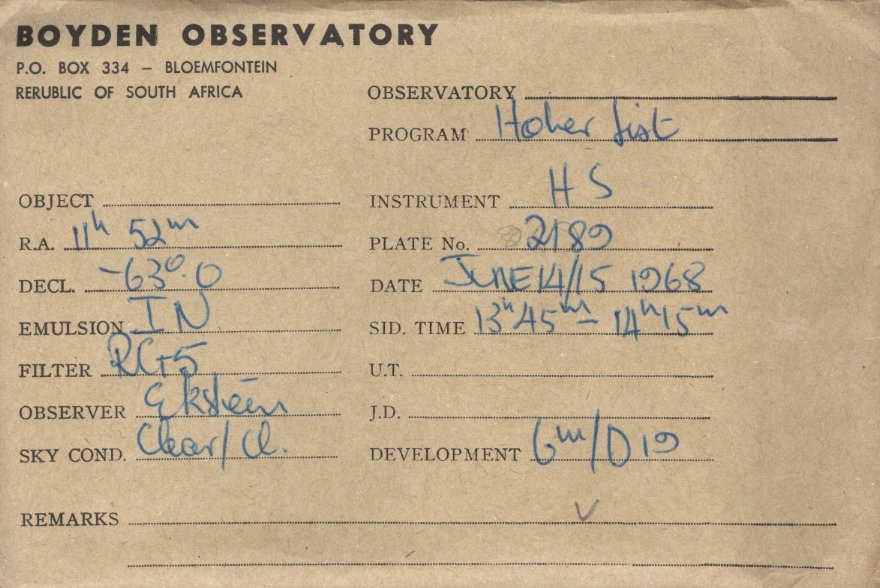 BOYDEN OBSERVATORY
P.O. BOX 334 – BLOEMFONTEIN
RERUBLIC OF SOUTH AFRICA
OBSERVATORY
PROGRAM Hoher List
OBJECT
INSTRUMENT H S
R.A. 11h 52m
PLATE No. 2189
DECL. -63°.0
DATE JUNE 14/15 1968
EMULSION IN
SID. TIME 13h45m – 14h15m
FILTER RG5
U.T.
OBSERVER Eksteen
J.D.
SKY COND. Clear/Cl.
DEVELOPMENT 6m/D19
REMARKS